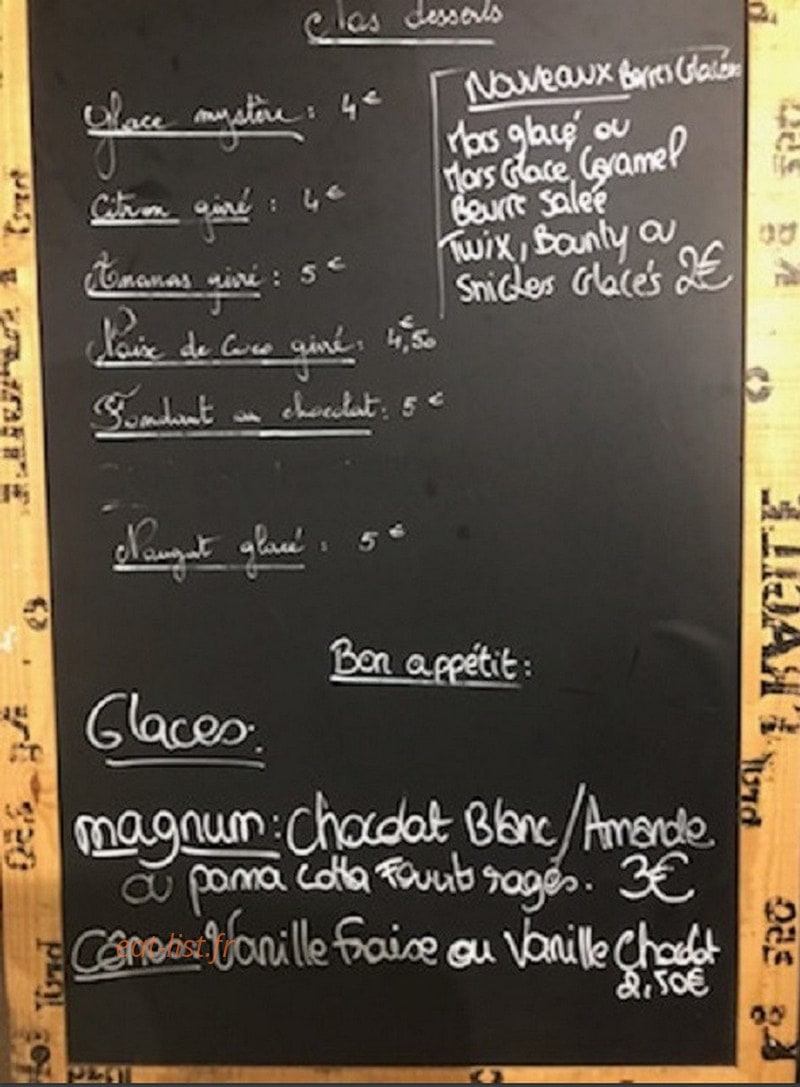 Nos desserts
Glace mystère : 4€
Citron givré : 4€
Ananas givré : 5€
Noix de coco givré : 4,50€
Fondant au chocolat : 5€
Nougat glacé : 5€
Nouveaux Barres Glacées
Mars glacé ou
Mars Glace Caramel
Beurre Salée
Twix, Bounty ou
Snickers Glacés 2€
Bon appétit :
Glaces.
magnum : Chocolat Blanc / Amande
ou panna cotta Fruits rages. 3€
Cônes Vanille Fraise ou Vanille Chocolat
2,50€
eat-list.fr